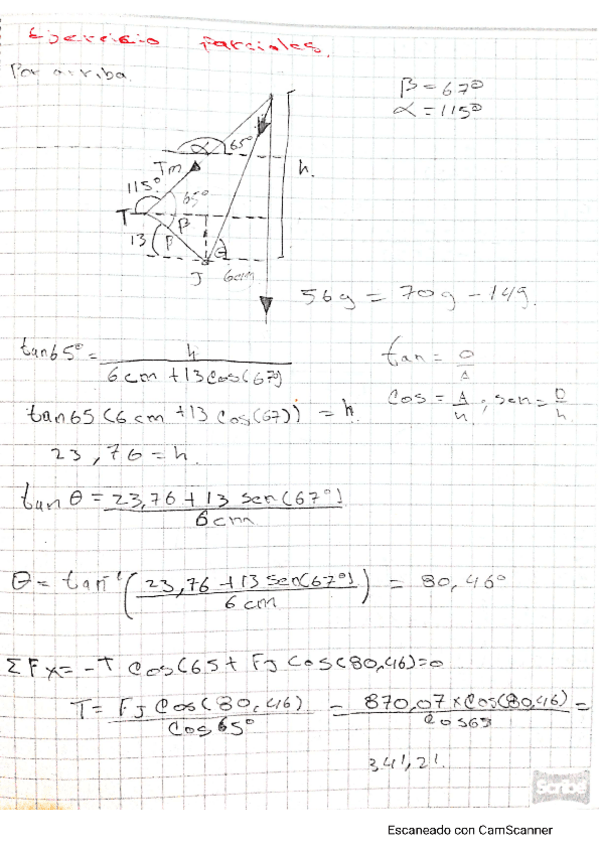 Ejercicio Parciales.
Por arriba.
β = 67°
α = 115°
α 65°
h.
Tm
115° 65°
T β
13 β θ
J 6cm
56g = 70g - 14g.
tan65° = h / 6cm + 13cos(67°)
tan = O/A
cos = A/h ; sen = O/h
tan65 (6cm + 13 cos(67)) = h
23,76 = h.
tan θ = 23,76 + 13 sen(67°) / 6cm
θ = tan⁻¹ ( 23,76 + 13 sen(67°) / 6cm ) = 80,46°
ΣFx = -T cos(65 + FJ cos(80,46) = 0
T = FJ cos(80,46) / cos 65° = 870,07 x cos(80,46) / cos65 =
341,21.
Scribe
Escaneado con CamScanner